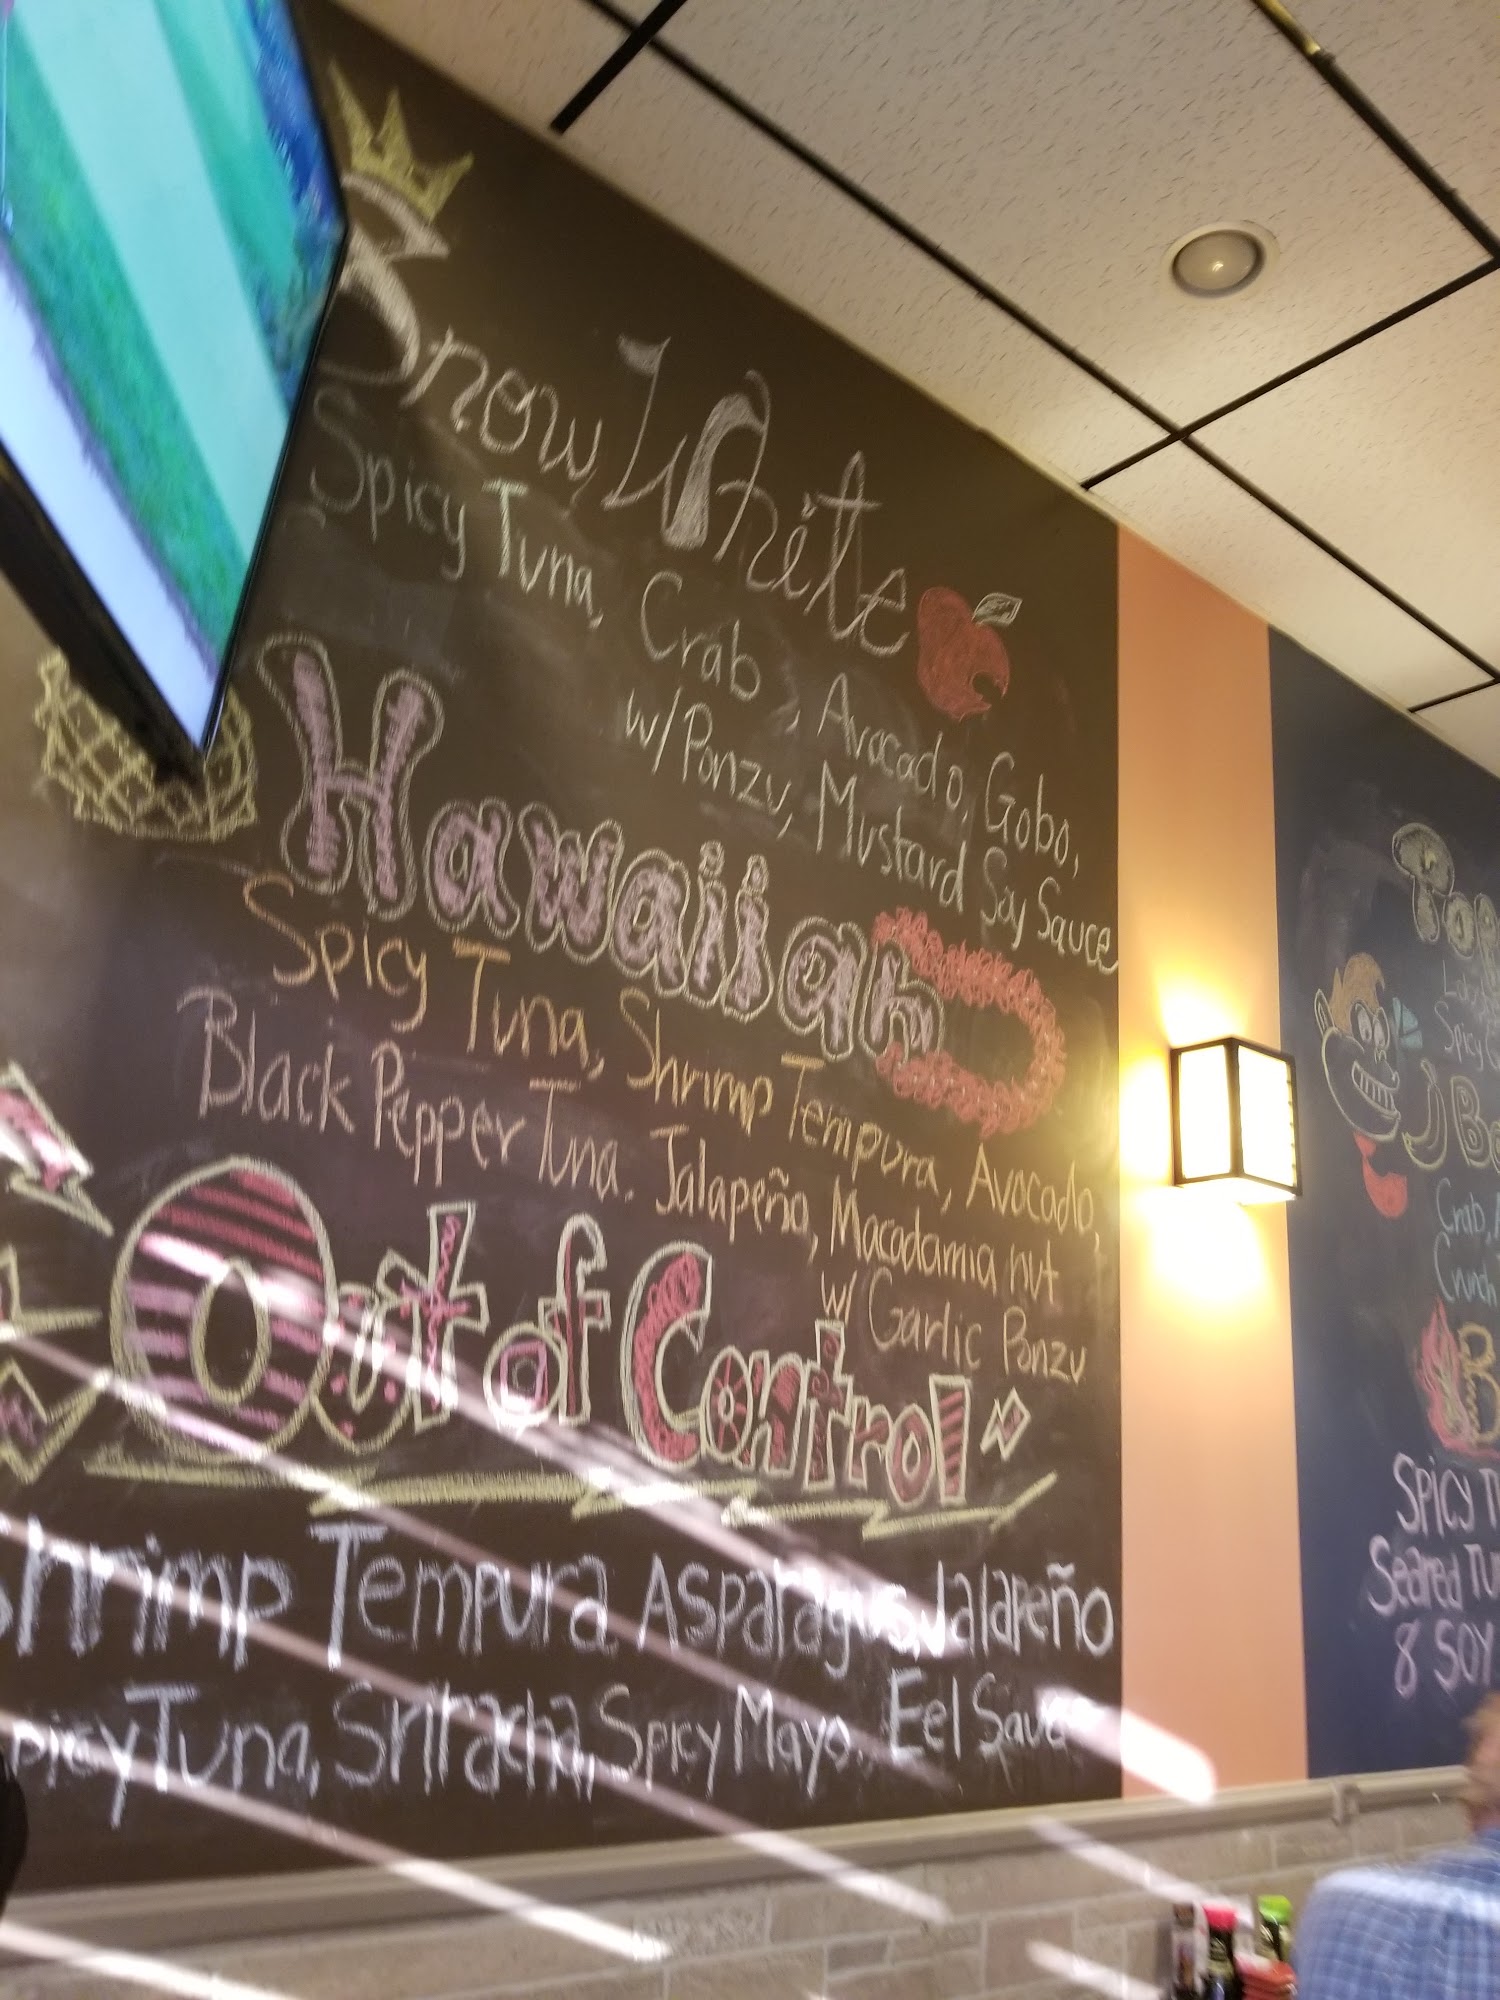 Snow White
Spicy Tuna, Crab, Avocado, Gobo,
w/ Ponzu, Mustard Soy Sauce
Hawaiian
Spicy Tuna, Shrimp Tempura, Avocado,
Black Pepper Tuna. Jalapeño, Macadamia nut
w/ Garlic Ponzu
Out of Control
Shrimp Tempura Asparagus, Jalapeño
Spicy Tuna, Sriracha, Spicy Mayo, Eel Sauce
Spicy
Crab,
Crunch
Spicy
Seared
& Soy